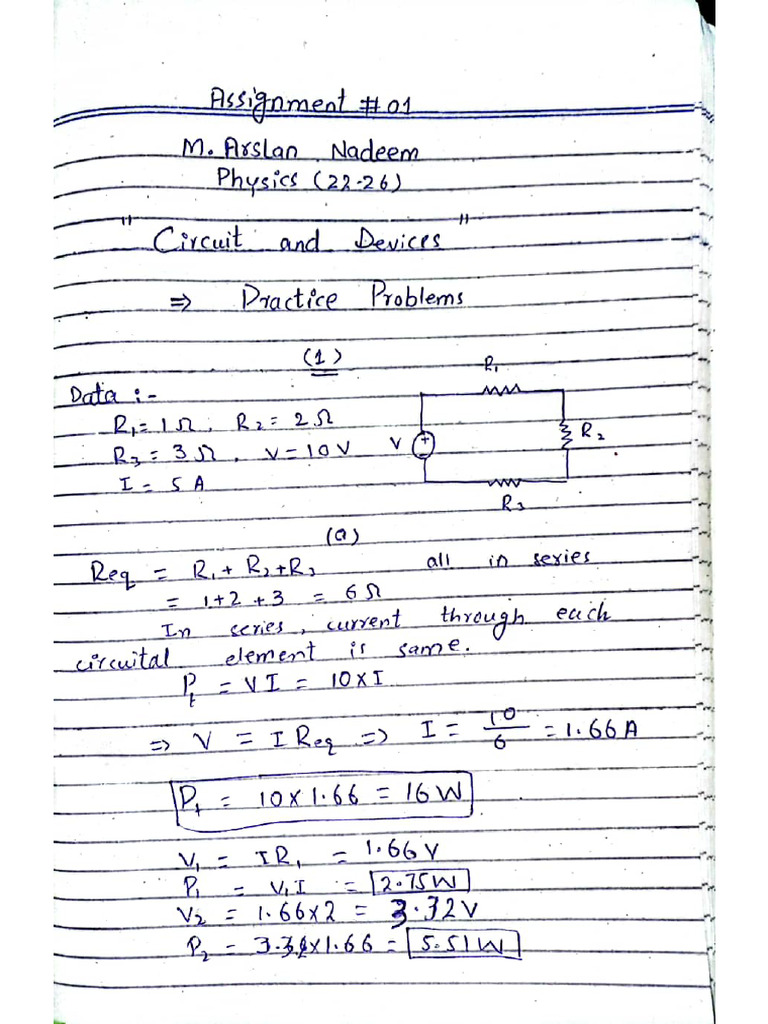 Assignment #01
M. Arslan Nadeem
Physics (22-26)
"Circuit and Devices"
⇒ Practice Problems
(1)
Data :-
R₁ = 1Ω, R₂ = 2Ω
R₃ = 3Ω, V = 10V
I = 5A
R₁
V
+
R₂
R₃
(a)
Req = R₁ + R₂ + R₃ all in series
= 1+2+3 = 6Ω
In series, current through each
circuital element is same.
Pt = VI = 10×I
⇒ V = I Req ⇒ I = 10/6 = 1.66A
Pt = 10×1.66 = 16W
V₁ = IR₁ = 1.66V
P₁ = V₁I = 2.75W
V₂ = 1.66×2 = 3.32V
P₂ = 3.32×1.66 = 5.51W